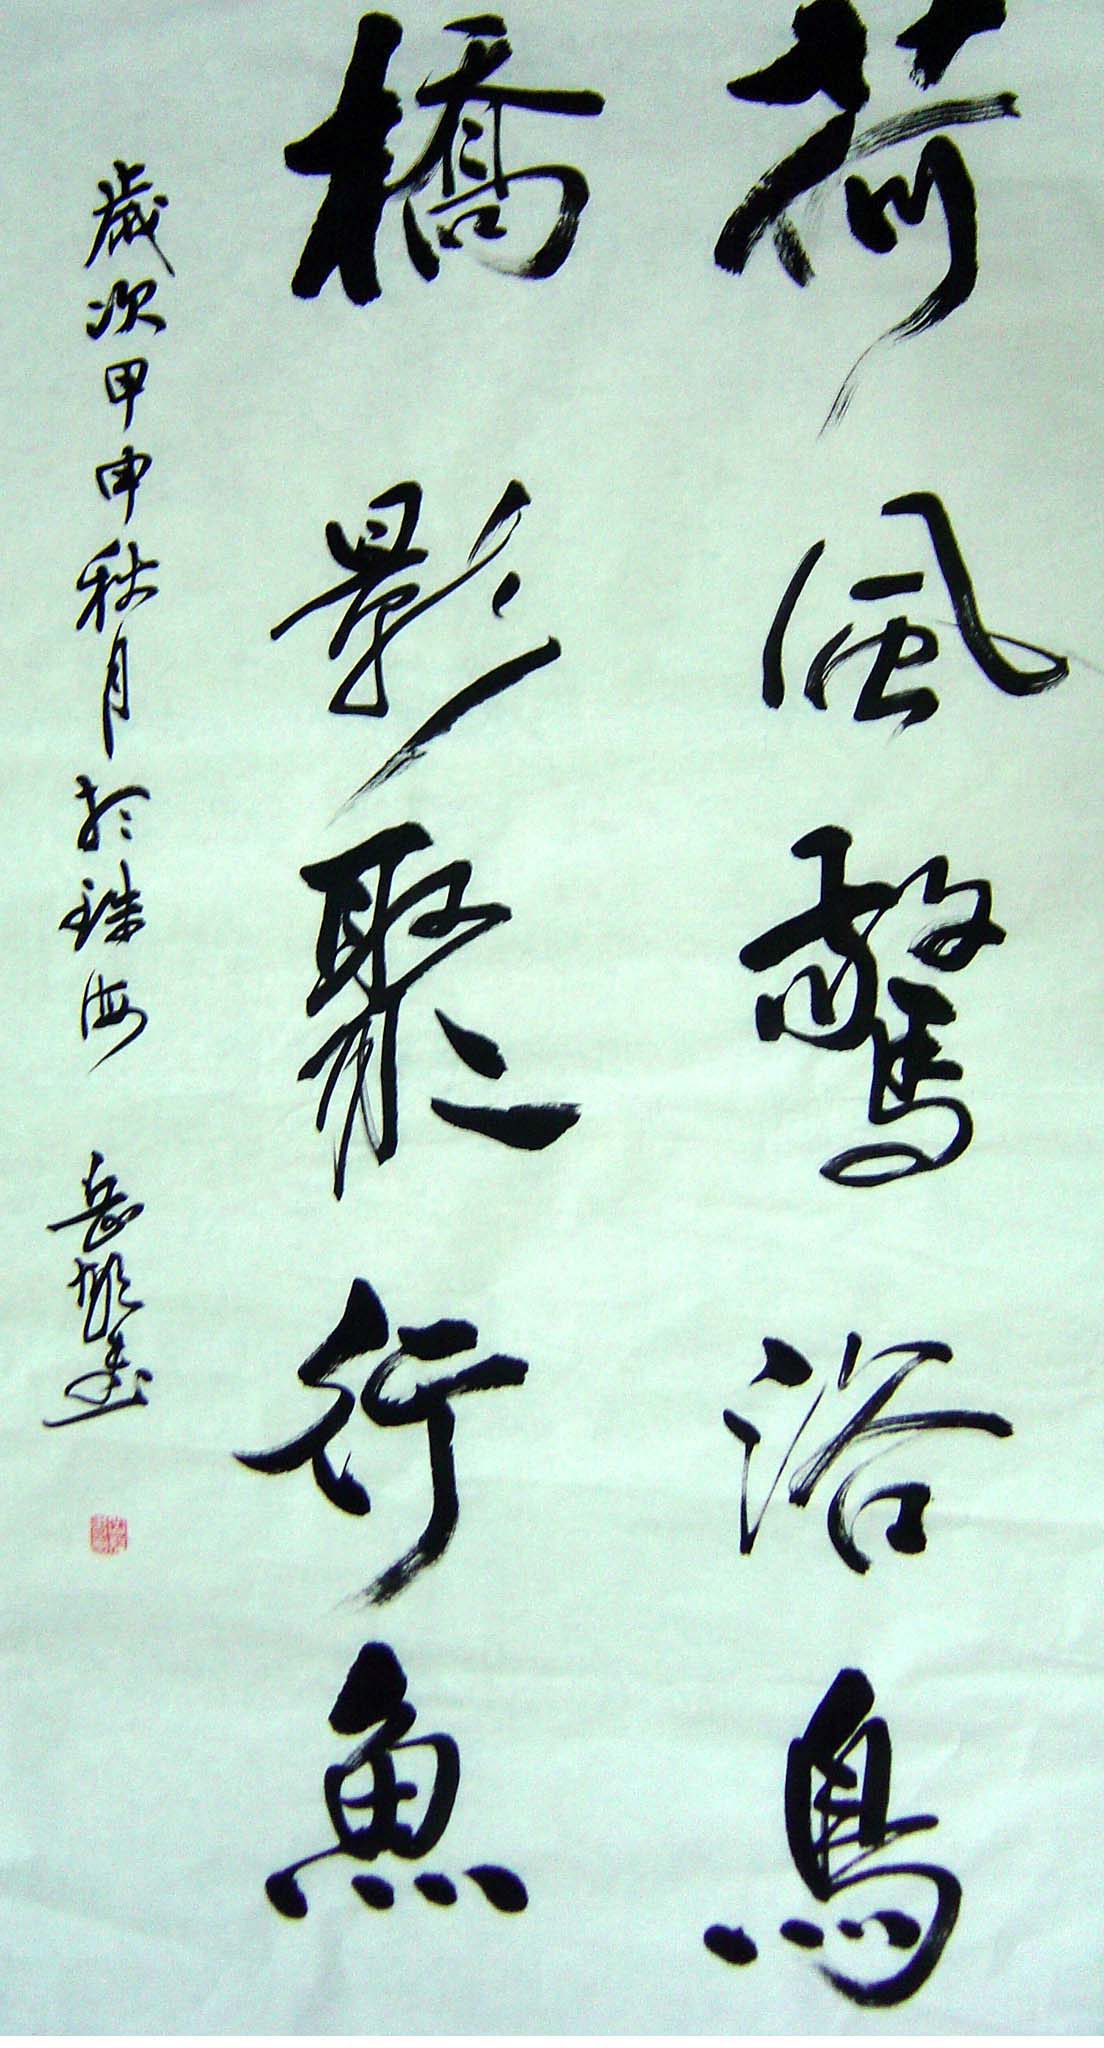 荷風驚浴鳥
橋影聚行魚
歲次甲申秋月於珠海 岳雄書